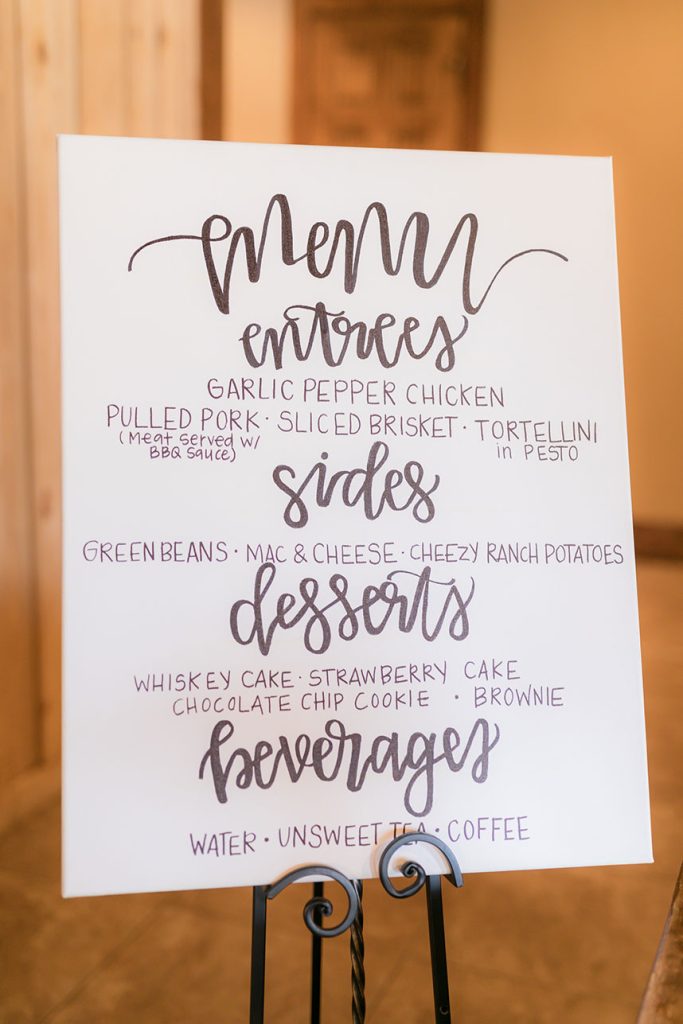 menu
entrees
GARLIC PEPPER CHICKEN
PULLED PORK · SLICED BRISKET · TORTELLINI
(Meat served w/ in PESTO
BBQ Sauce)
sides
GREEN BEANS · MAC & CHEESE · CHEEZY RANCH POTATOES
desserts
WHISKEY CAKE · STRAWBERRY CAKE
CHOCOLATE CHIP COOKIE · BROWNIE
beverages
WATER · UNSWEET TEA · COFFEE